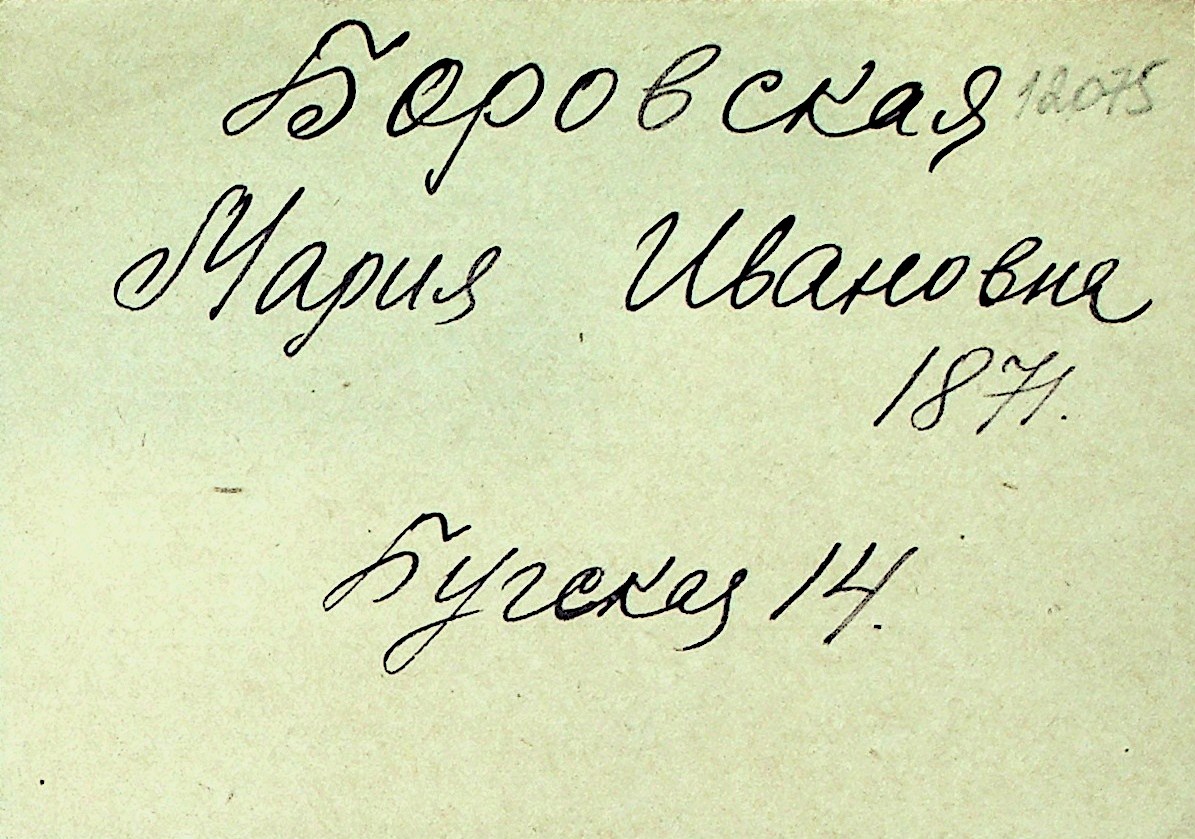 Боровская 12075
Мария Ивановна
1871.
Бугская 14.